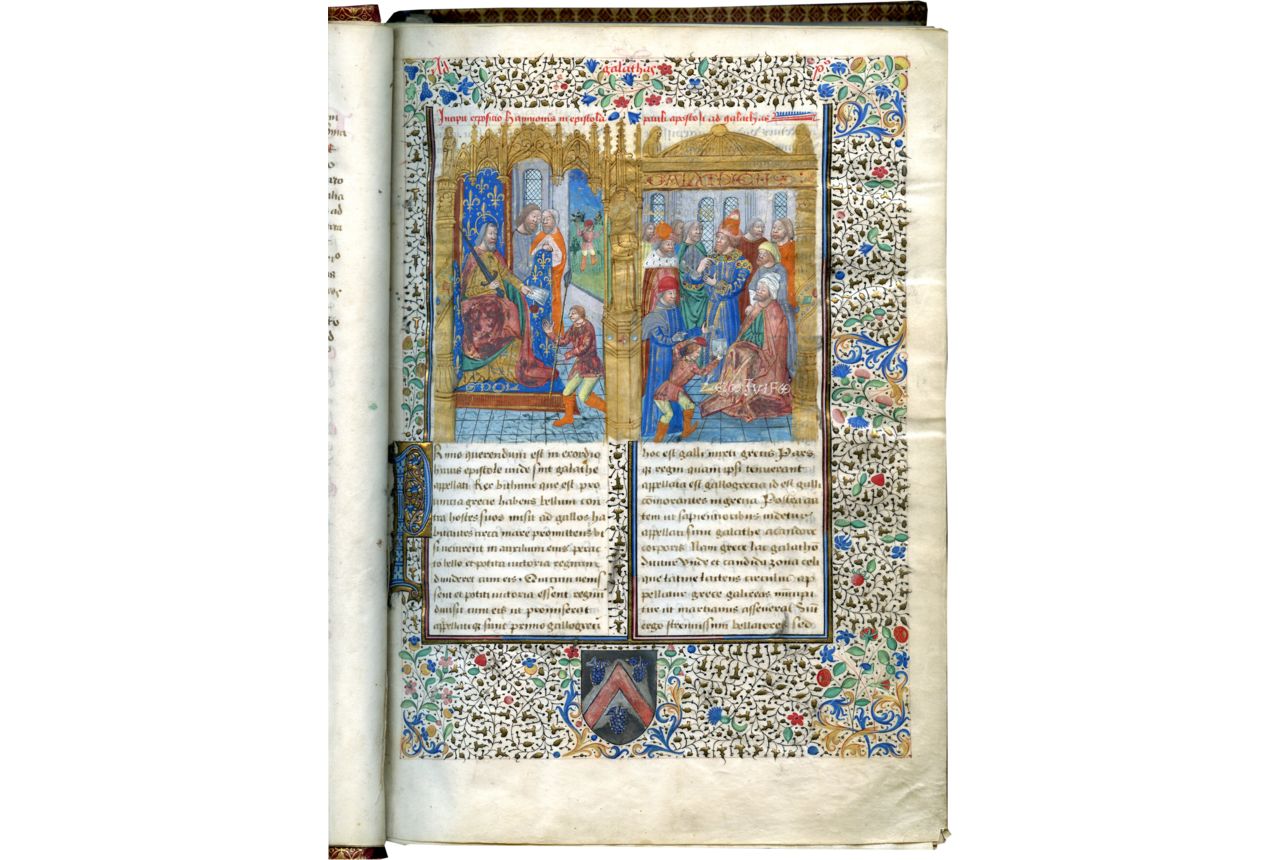 Ad galathas
Incipit expositio Haymonis in epistola pauli apostoli ad galathas
Primo querendum est in exordio
huius epistole unde sint galathe
appellati Rex bithinie que est pro
uincia grecie habens bellum con
tra hostes suos misit ad gallos ha
bitantes circa mare promittens ut
si uenirent in auxilium eius perac
to bello et potita uictoria regnum
diuideret cum eis. Qui cum uenis
sent et potiti uictoria essent regnum
diuisit cum eis ut promiserat
appellatiq sunt primo gallogreci
hoc est galli mixti grecis. Pars
q regni quam ipsi tenuerant
appellata est gallogrecia id est galli
commorantes in grecia. Postea au
tem ut sapientioribus uidetur
appellati sunt galathe a candore
corporis. Nam grece lac galatheu
dicitur Unde et candida zona celi
que latine lacteus circulus ap
pellatur grece galaxias nuncupa
tur ut martianus asseuerat Sunt
ergo strenuissimi bellatores sed